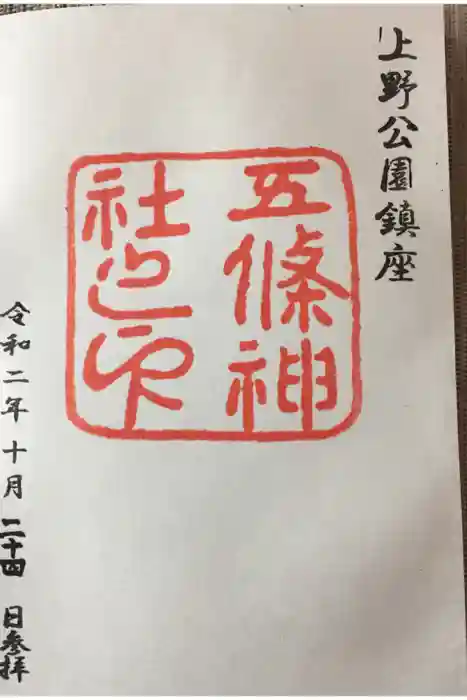 上野公園鎮座
五條神
社之印
令和二年十月二十四日参拝